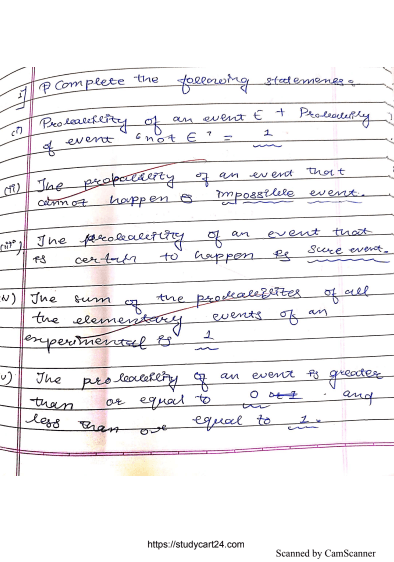 P Complete the following statements.
(i) Probability of an event E + Probability
of event "not E" = 1
(ii) The probability of an event that
cannot happen is impossible event.
(iii) The probability of an event that
is certain to happen is sure event.
The sum of the probabilities of all
the elementary events of an
experimental is 1
The probability of an event is greater
than or equal to 0 and
less than or equal to 1.
https://studycart24.com
Scanned by CamScanner